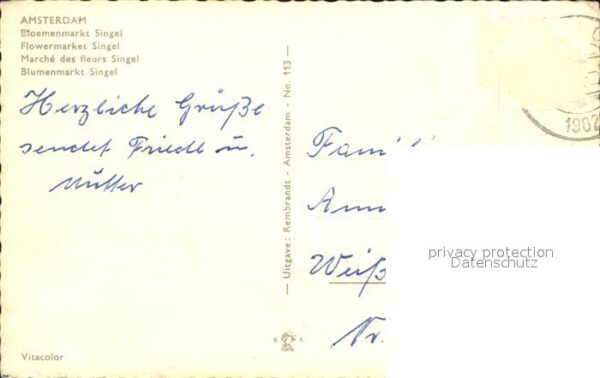 AMSTERDAM
Bloemenmarkt Singel
Flowermarket Singel
Marché des fleurs Singel
Blumenmarkt Singel
Herzliche Grüße
sendet Friedl u.
Mutter
— Uitgave: Rembrandt - Amsterdam - No. 113 —
1962
Famil
Ann
Weiß
Nr.
privacy protection
Datenschutz
R A
Vitacolor